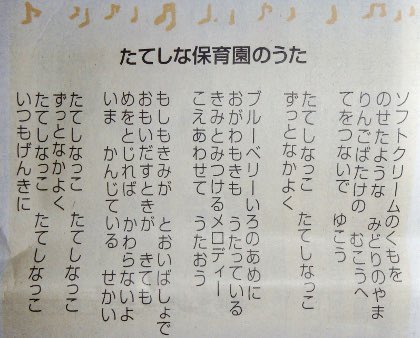 たてしな保育園のうた
ソフトクリームのくもを
のせたような　みどりのやま
りんごばたけの　むこうへ
てをつないで　ゆこう
たてしなっこ　たてしなっこ
ずっとなかよく
ブルーベリーいろのあめに
おがわもきも　うたっている
きみとみつけるメロディー
こえあわせて　うたおう
もしもきみが　とおいばしょで
おもいだすときが　きても
めをとじれば　かわらないよ
いま　かんじている　せかい
たてしなっこ　たてしなっこ
ずっとなかよく
たてしなっこ　たてしなっこ
いつもげんきに